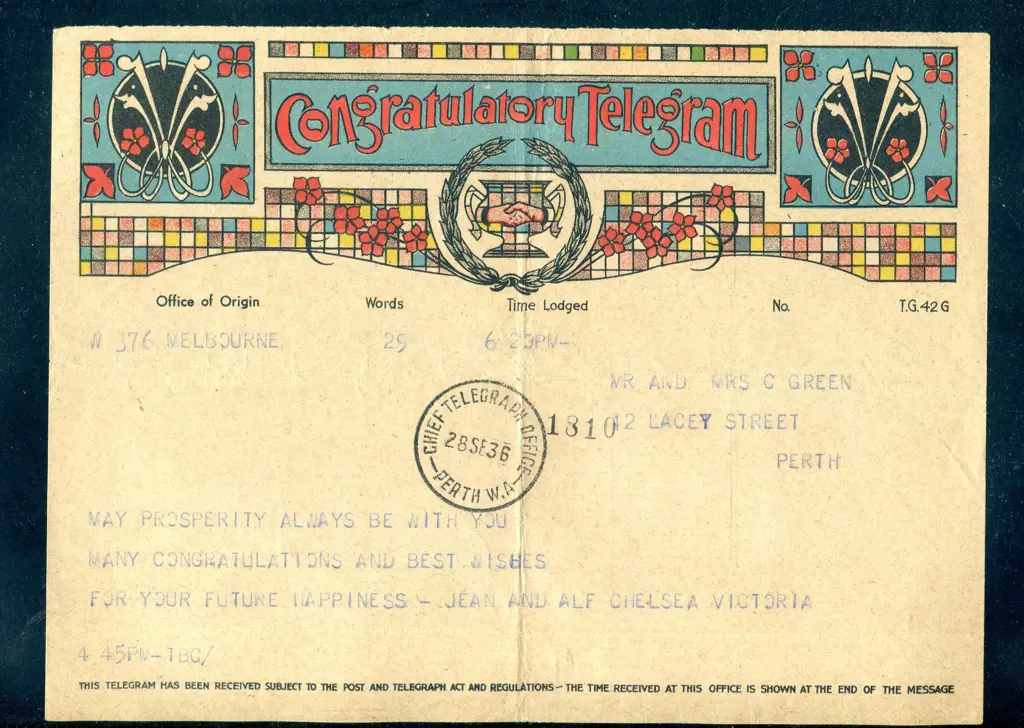 Congratulatory Telegram
Office of Origin Words Time Lodged No. T.G. 42 G
W 376 MELBOURNE 29 6 20PM-
MR AND MRS C GREEN
1810 42 LACEY STREET
PERTH
CHIEF TELEGRAPH OFFICE
28SE36
PERTH W.A
MAY PROSPERITY ALWAYS BE WITH YOU
MANY CONGRATULATIONS AND BEST WISHES
FOR YOUR FUTURE HAPPINESS - JEAN AND ALF CHELSEA VICTORIA
4 45PM-TBC/
THIS TELEGRAM HAS BEEN RECEIVED SUBJECT TO THE POST AND TELEGRAPH ACT AND REGULATIONS — THE TIME RECEIVED AT THIS OFFICE IS SHOWN AT THE END OF THE MESSAGE